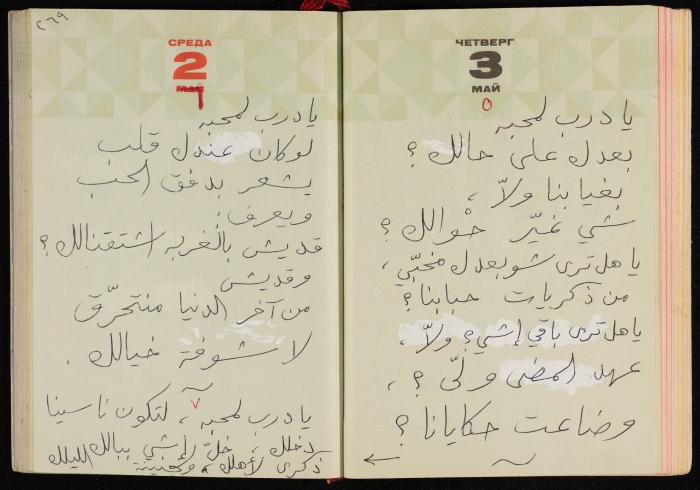 ЧЕТВЕРГ
3
МАЙ
٥
يا درب لمحبه
بعدك على حالك؟
بغيابنا ولاّ،
شي غيّر حْوالك؟
يا هل ترى شو بعدك مخبّي،
من ذكريات حبابنا؟
يا هل ترى باقي إشي؟ ولاّ،
عهد المضى ولّى؟،
وضاعت حكايانا؟
←
٢٦٩
СРЕДА
2
МАЙ
٦
يا درب لمحبه
لو كان عندك قلب
يشعر بدفق الحب
ويعرف:
قديش بالغربه اشتقنالك؟
وقديش
من آخر الدنيا منتحرّق
لا شوفة خيالك.
٧
يا درب لمحبه، لتكون ناسينا
دخلك، خلّ إشي ببالك
ذكرى لأهلك،